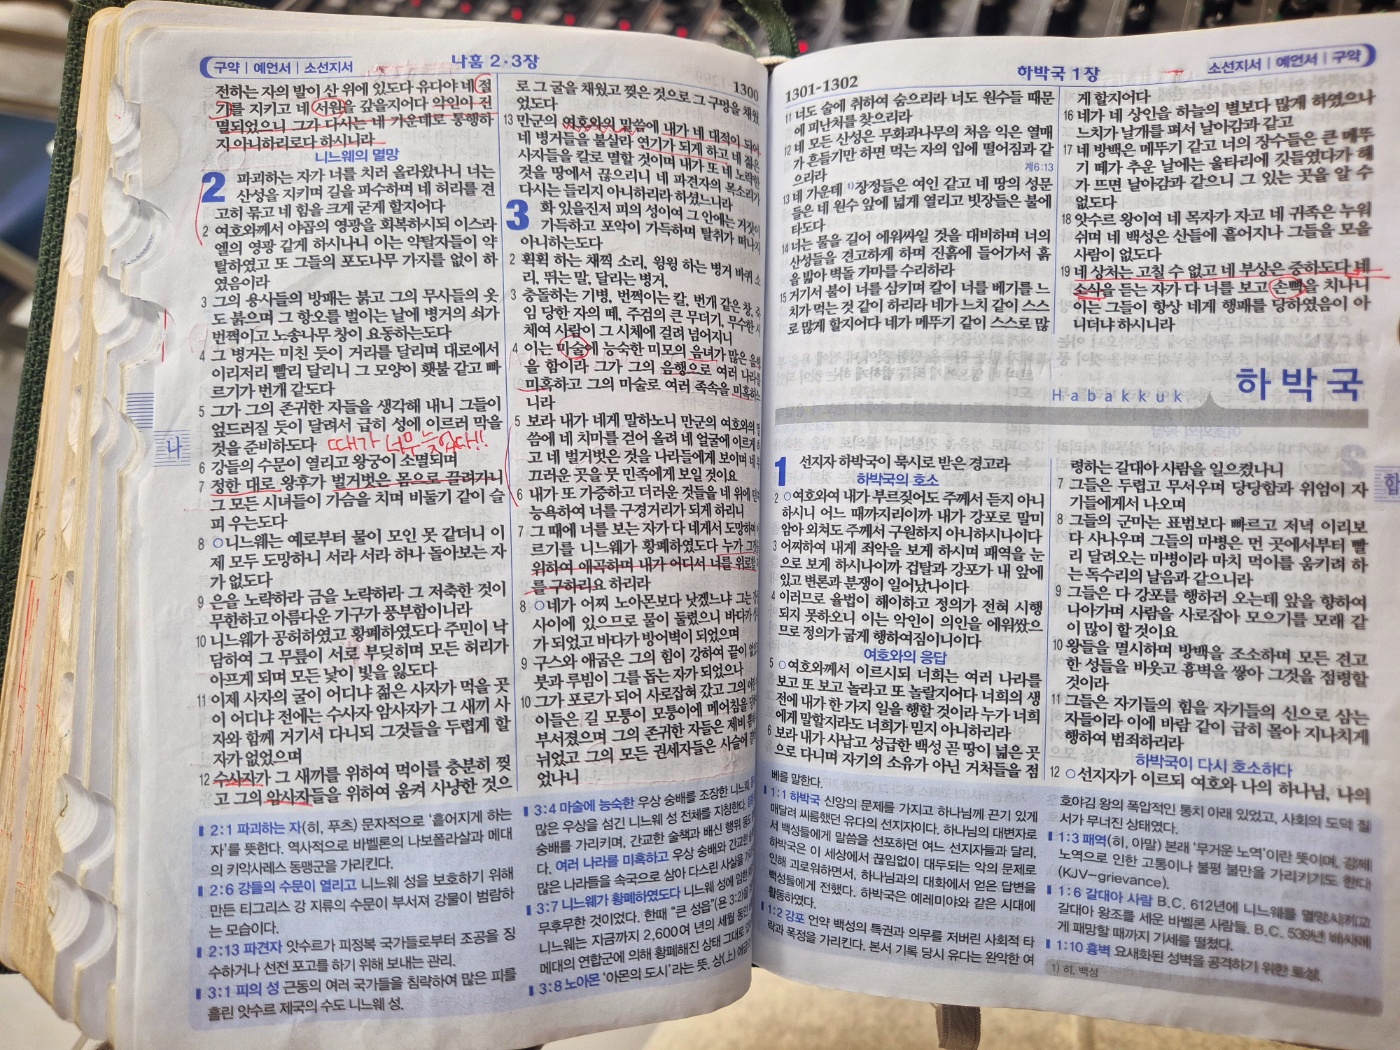 구약 | 예언서 | 소선지서
나훔 2·3장
1300
전하는 자의 발이 산 위에 있도다 유다야 네 절
기를 지키고 네 서원을 갚을지어다 악인이 진
멸되었으니 그가 다시는 네 가운데로 통행하
지 아니하리로다 하시니라
니느웨의 멸망
2 파괴하는 자가 너를 치러 올라왔나니 너는
산성을 지키며 길을 파수하며 네 허리를 견
고히 묶고 네 힘을 크게 굳게 할지어다
2 여호와께서 야곱의 영광을 회복하시되 이스라
엘의 영광 같게 하시나니 이는 약탈자들이 약
탈하였고 또 그들의 포도나무 가지를 없이 하
였음이라
3 그의 용사들의 방패는 붉고 그의 무사들의 옷
도 붉으며 그 항오를 벌이는 날에 병거의 쇠가
번쩍이고 노송나무 창이 요동하는도다
4 그 병거는 미친 듯이 거리를 달리며 대로에서
이리저리 빨리 달리니 그 모양이 횃불 같고 빠
르기가 번개 같도다
5 그가 그의 존귀한 자들을 생각해 내니 그들이
엎드러질 듯이 달려서 급히 성에 이르러 막을
것을 준비하도다 때가 너무 늦었다!!
6 강들의 수문이 열리고 왕궁이 소멸되며
7 정한 대로 왕후가 벌거벗은 몸으로 끌려가니
그 모든 시녀들이 가슴을 치며 비둘기 같이 슬
피 우는도다
8 ○니느웨는 예로부터 물이 모인 못 같더니 이
제 모두 도망하니 서라 서라 하나 돌아보는 자
가 없도다
9 은을 노략하라 금을 노략하라 그 저축한 것이
무한하고 아름다운 기구가 풍부함이니라
10 니느웨가 공허하였고 황폐하였도다 주민이 낙
담하여 그 무릎이 서로 부딪히며 모든 허리가
아프게 되며 모든 낯이 빛을 잃도다
11 이제 사자의 굴이 어디냐 젊은 사자가 먹을 곳
이 어디냐 전에는 수사자 암사자가 그 새끼 사
자와 함께 거기서 다니되 그것들을 두렵게 할
자가 없었으며
12 수사자가 그 새끼를 위하여 먹이를 충분히 찢
고 그의 암사자들을 위하여 움켜 사냥한 것으
로 그 굴을 채웠고 찢은 것으로 그 구멍을 채웠
었도다
13 만군의 여호와의 말씀에 내가 네 대적이 되어
네 병거들을 불살라 연기가 되게 하고 네 젊은
사자들을 칼로 멸할 것이며 내가 또 네 노략한
것을 땅에서 끊으리니 네 파견자의 목소리가
다시는 들리지 아니하리라 하셨느니라
3 화 있을진저 피의 성이여 그 안에는 거짓이
가득하고 포악이 가득하며 탈취가 떠나지
아니하는도다
2 휙휙 하는 채찍 소리, 윙윙 하는 병거 바퀴 소
리, 뛰는 말, 달리는 병거,
3 충돌하는 기병, 번쩍이는 칼, 번개 같은 창, 죽
임 당한 자의 떼, 주검의 큰 무더기, 무수한 시
체여 사람이 그 시체에 걸려 넘어지니
4 이는 마술에 능숙한 미모의 음녀가 많은 음행
을 함이라 그가 그의 음행으로 여러 나라를
미혹하고 그의 마술로 여러 족속을 미혹하느
니라
5 보라 내가 네게 말하노니 만군의 여호와의 말
씀에 네 치마를 걷어 올려 네 얼굴에 이르게 하
고 네 벌거벗은 것을 나라들에게 보이며 네 부
끄러운 곳을 뭇 민족에게 보일 것이요
6 내가 또 가증하고 더러운 것들을 네 위에 던져
능욕하여 너를 구경거리가 되게 하리니
7 그 때에 너를 보는 자가 다 네게서 도망하며 이
르기를 니느웨가 황폐하였도다 누가 그것을
위하여 애곡하며 내가 어디서 너를 위로할 자
를 구하리요 하리라
8 ○네가 어찌 노아몬보다 낫겠느냐 그는
사이에 있으므로 물이 둘렸으니 바다가
가 되었고 바다가 방어벽이 되었으며
9 구스와 애굽은 그의 힘이 강하여 끝이 없었고
붓과 루빔이 그를 돕는 자가 되었으나
10 그가 포로가 되어 사로잡혀 갔고 그의 어린
이들은 길 모퉁이 모퉁이에 메어침을 당하여
부서졌으며 그의 존귀한 자들은 제비 뽑혀
뉘었고 그의 모든 권세자들은 사슬에 결박되
었나니
2:1 파괴하는 자(히, 푸츠) 문자적으로 '흩어지게 하는
자'를 뜻한다. 역사적으로 바벨론의 나보폴라살과 메대
의 키악사레스 동맹군을 가리킨다.
2:6 강들의 수문이 열리고 니느웨 성을 보호하기 위해
만든 티그리스 강 지류의 수문이 부서져 강물이 범람하
는 모습이다.
2:13 파견자 앗수르가 피정복 국가들로부터 조공을 징
수하거나 선전 포고를 하기 위해 보내는 관리.
3:1 피의 성 근동의 여러 국가들을 침략하여 많은 피를
흘린 앗수르 제국의 수도 니느웨 성.
3:4 마술에 능숙한 우상 숭배를 조장한 니느웨
많은 우상을 섬긴 니느웨 성 전체를 지칭한다.
숭배를 가리키며, 간교한 술책과 배신 행위
다. 여러 나라를 미혹하고 우상 숭배와 간교한
많은 나라들을 속국으로 삼아 다스린 사실을
3:7 니느웨가 황폐하였도다 니느웨 성에 임한
무후무한 것이었다. 한때 "큰 성읍"(욘 3:2)을
니느웨는 지금까지 2,600여 년의 세월 동안
메대의 연합군에 의해 황폐해진 상태 그대로
3:8 노아몬 '아몬의 도시'라는 뜻. 상(上) 애굽
1301-1302
하박국 1장
소선지서 | 예언서 | 구약
11 너도 술에 취하여 숨으리라 너도 원수들 때문
에 피난처를 찾으리라
12 네 모든 산성은 무화과나무의 처음 익은 열매
가 흔들기만 하면 먹는 자의 입에 떨어짐과 같
으리라 계6:13
13 네 가운데 1)장정들은 여인 같고 네 땅의 성문
들은 네 원수 앞에 넓게 열리고 빗장들은 불에
타도다
14 너는 물을 길어 에워싸일 것을 대비하며 너의
산성들을 견고하게 하며 진흙에 들어가서 흙
을 밟아 벽돌 가마를 수리하라
15 거기서 불이 너를 삼키며 칼이 너를 베기를 느
치가 먹는 것 같이 하리라 네가 느치 같이 스스
로 많게 할지어다 네가 메뚜기 같이 스스로 많
게 할지어다
16 네가 네 상인을 하늘의 별보다 많게 하였으나
느치가 날개를 펴서 날아감과 같고
17 네 방백은 메뚜기 같고 너의 장수들은 큰 메뚜
기 떼가 추운 날에는 울타리에 깃들였다가 해
가 뜨면 날아감과 같으니 그 있는 곳을 알 수
없도다
18 앗수르 왕이여 네 목자가 자고 네 귀족은 누워
쉬며 네 백성은 산들에 흩어지나 그들을 모을
사람이 없도다
19 네 상처는 고칠 수 없고 네 부상은 중하도다 네
소식을 듣는 자가 다 너를 보고 손뼉을 치나니
이는 그들이 항상 네게 행패를 당하였음이 아
니더냐 하시니라
Habakkuk 하박국
1 선지자 하박국이 묵시로 받은 경고라
하박국의 호소
2 ○여호와여 내가 부르짖어도 주께서 듣지 아니
하시니 어느 때까지리이까 내가 강포로 말미
암아 외쳐도 주께서 구원하지 아니하시나이다
3 어찌하여 내게 죄악을 보게 하시며 패역을 눈
으로 보게 하시나이까 겁탈과 강포가 내 앞에
있고 변론과 분쟁이 일어났나이다
4 이러므로 율법이 해이하고 정의가 전혀 시행
되지 못하오니 이는 악인이 의인을 에워쌌으
므로 정의가 굽게 행하여짐이니이다
여호와의 응답
5 ○여호와께서 이르시되 너희는 여러 나라를
보고 또 보고 놀라고 또 놀랄지어다 너희의 생
전에 내가 한 가지 일을 행할 것이라 누가 너희
에게 말할지라도 너희가 믿지 아니하리라
6 보라 내가 사납고 성급한 백성 곧 땅이 넓은 곳
으로 다니며 자기의 소유가 아닌 거처들을 점
령하는 갈대아 사람을 일으켰나니
7 그들은 두렵고 무서우며 당당함과 위엄이 자
기들에게서 나오며
8 그들의 군마는 표범보다 빠르고 저녁 이리보
다 사나우며 그들의 마병은 먼 곳에서부터 빨
리 달려오는 마병이라 마치 먹이를 움키려 하
는 독수리의 날음과 같으니라
9 그들은 다 강포를 행하러 오는데 앞을 향하여
나아가며 사람을 사로잡아 모으기를 모래 같
이 많이 할 것이요
10 왕들을 멸시하며 방백을 조소하며 모든 견고
한 성들을 비웃고 흉벽을 쌓아 그것을 점령할
것이라
11 그들은 자기들의 힘을 자기들의 신으로 삼는
자들이라 이에 바람 같이 급히 몰아 지나치게
행하여 범죄하리라
하박국이 다시 호소하다
12 ○선지자가 이르되 여호와 나의 하나님, 나의
베를 말한다.
1:1 하박국 신앙의 문제를 가지고 하나님께 끈기 있게
매달려 씨름했던 유다의 선지자이다. 하나님의 대변자로
서 백성들에게 말씀을 선포하던 여느 선지자들과 달리,
하박국은 이 세상에서 끊임없이 대두되는 악의 문제로
인해 괴로워하면서, 하나님과의 대화에서 얻은 답변을
백성들에게 전했다. 하박국은 예레미야와 같은 시대에
활동하였다.
1:2 강포 언약 백성의 특권과 의무를 저버린 사회적 타
락과 폭정을 가리킨다. 본서 기록 당시 유다는 완악한 여
호야김 왕의 폭압적인 통치 아래 있었고, 사회의 도덕 질
서가 무너진 상태였다.
1:3 패역(히, 아말) 본래 '무거운 노역'이란 뜻이며, 강제
노역으로 인한 고통이나 불평 불만을 가리키기도 한다
(KJV-grievance).
1:6 갈대아 사람 B.C. 612년에 니느웨를 멸망시키고
갈대아 왕조를 세운 바벨론 사람들. B.C. 539년 바사에
게 패망할 때까지 기세를 떨쳤다.
1:10 흉벽 요새화된 성벽을 공격하기 위한 토성.
1) 히, 백성
나
합